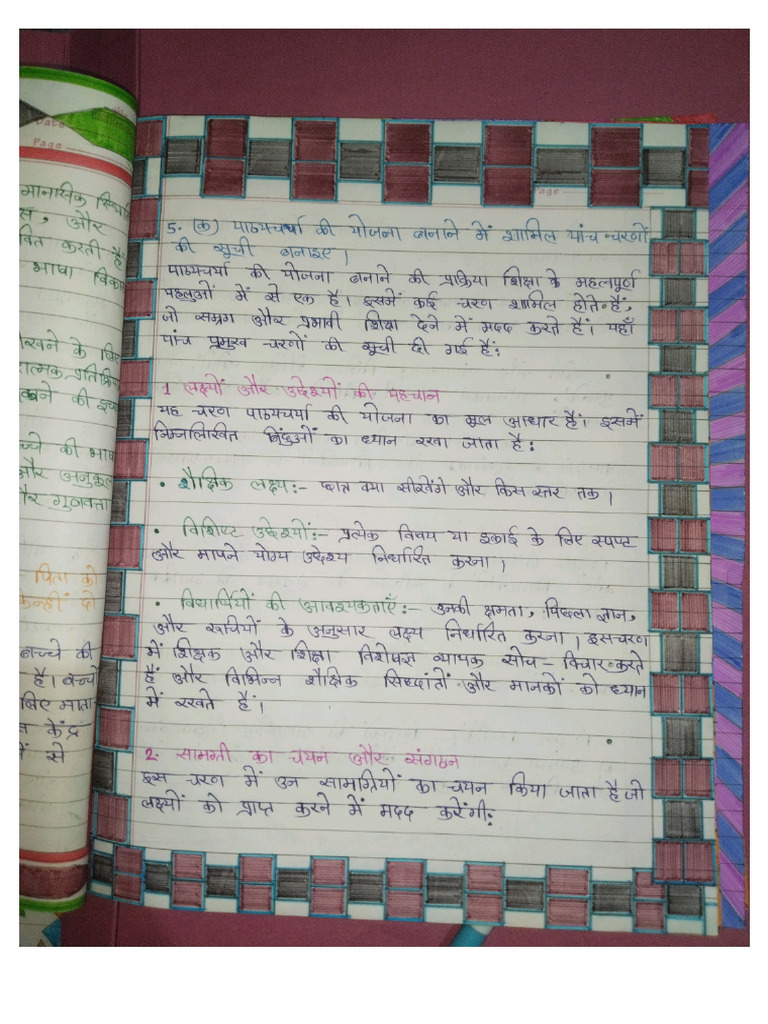 Date
Page
मानसिक स्थि
और
करती है
भाषा विका
खने के लिए
की इच्
च्चे की भाष
और अनुकूल
गुणवत्ता
पिता को
दो
बच्चे की
है। बच्चो
लिए माता
केंद्र
से
Page
5. (क) पाठ्यचर्या की योजना बनाने में शामिल पांच चरणों
की सूची बनाइए।
पाठ्यचर्या की योजना बनाने की प्रक्रिया शिक्षा के महत्वपूर्ण
पहलुओं में से एक है। इसमें कई चरण शामिल होते हैं,
जो समग्र और प्रभावी शिक्षा देने में मदद करते हैं। यहाँ
पांच प्रमुख चरणों की सूची दी गई है:
1 लक्ष्यों और उद्देश्यों की पहचान
यह चरण पाठ्यचर्या की योजना का मूल आधार है। इसमें
निम्नलिखित बिंदुओं का ध्यान रखा जाता है:
• शैक्षिक लक्ष्य:- छात्र क्या सीखेंगे और किस स्तर तक।
• विशिष्ट उद्देश्यों:- प्रत्येक विषय या इकाई के लिए स्पष्ट
और मापने योग्य उद्देश्य निर्धारित करना।
• विद्यार्थियों की आवश्यकताएँ:- उनकी क्षमता, पिछला ज्ञान,
और रूचियों के अनुसार लक्ष्य निर्धारित करना। इसचरण
में शिक्षक और शिक्षा विशेषज्ञ व्यापक सोच-विचार करते
हैं और विभिन्न शैक्षिक सिध्दांतों और मानकों को ध्यान
में रखते हैं।
2. सामग्री का चयन और संगठन
इस चरण में उन सामाग्रियों का चयन किया जाता है जो
लक्ष्यों को प्राप्त करने में मदद करेंगी: